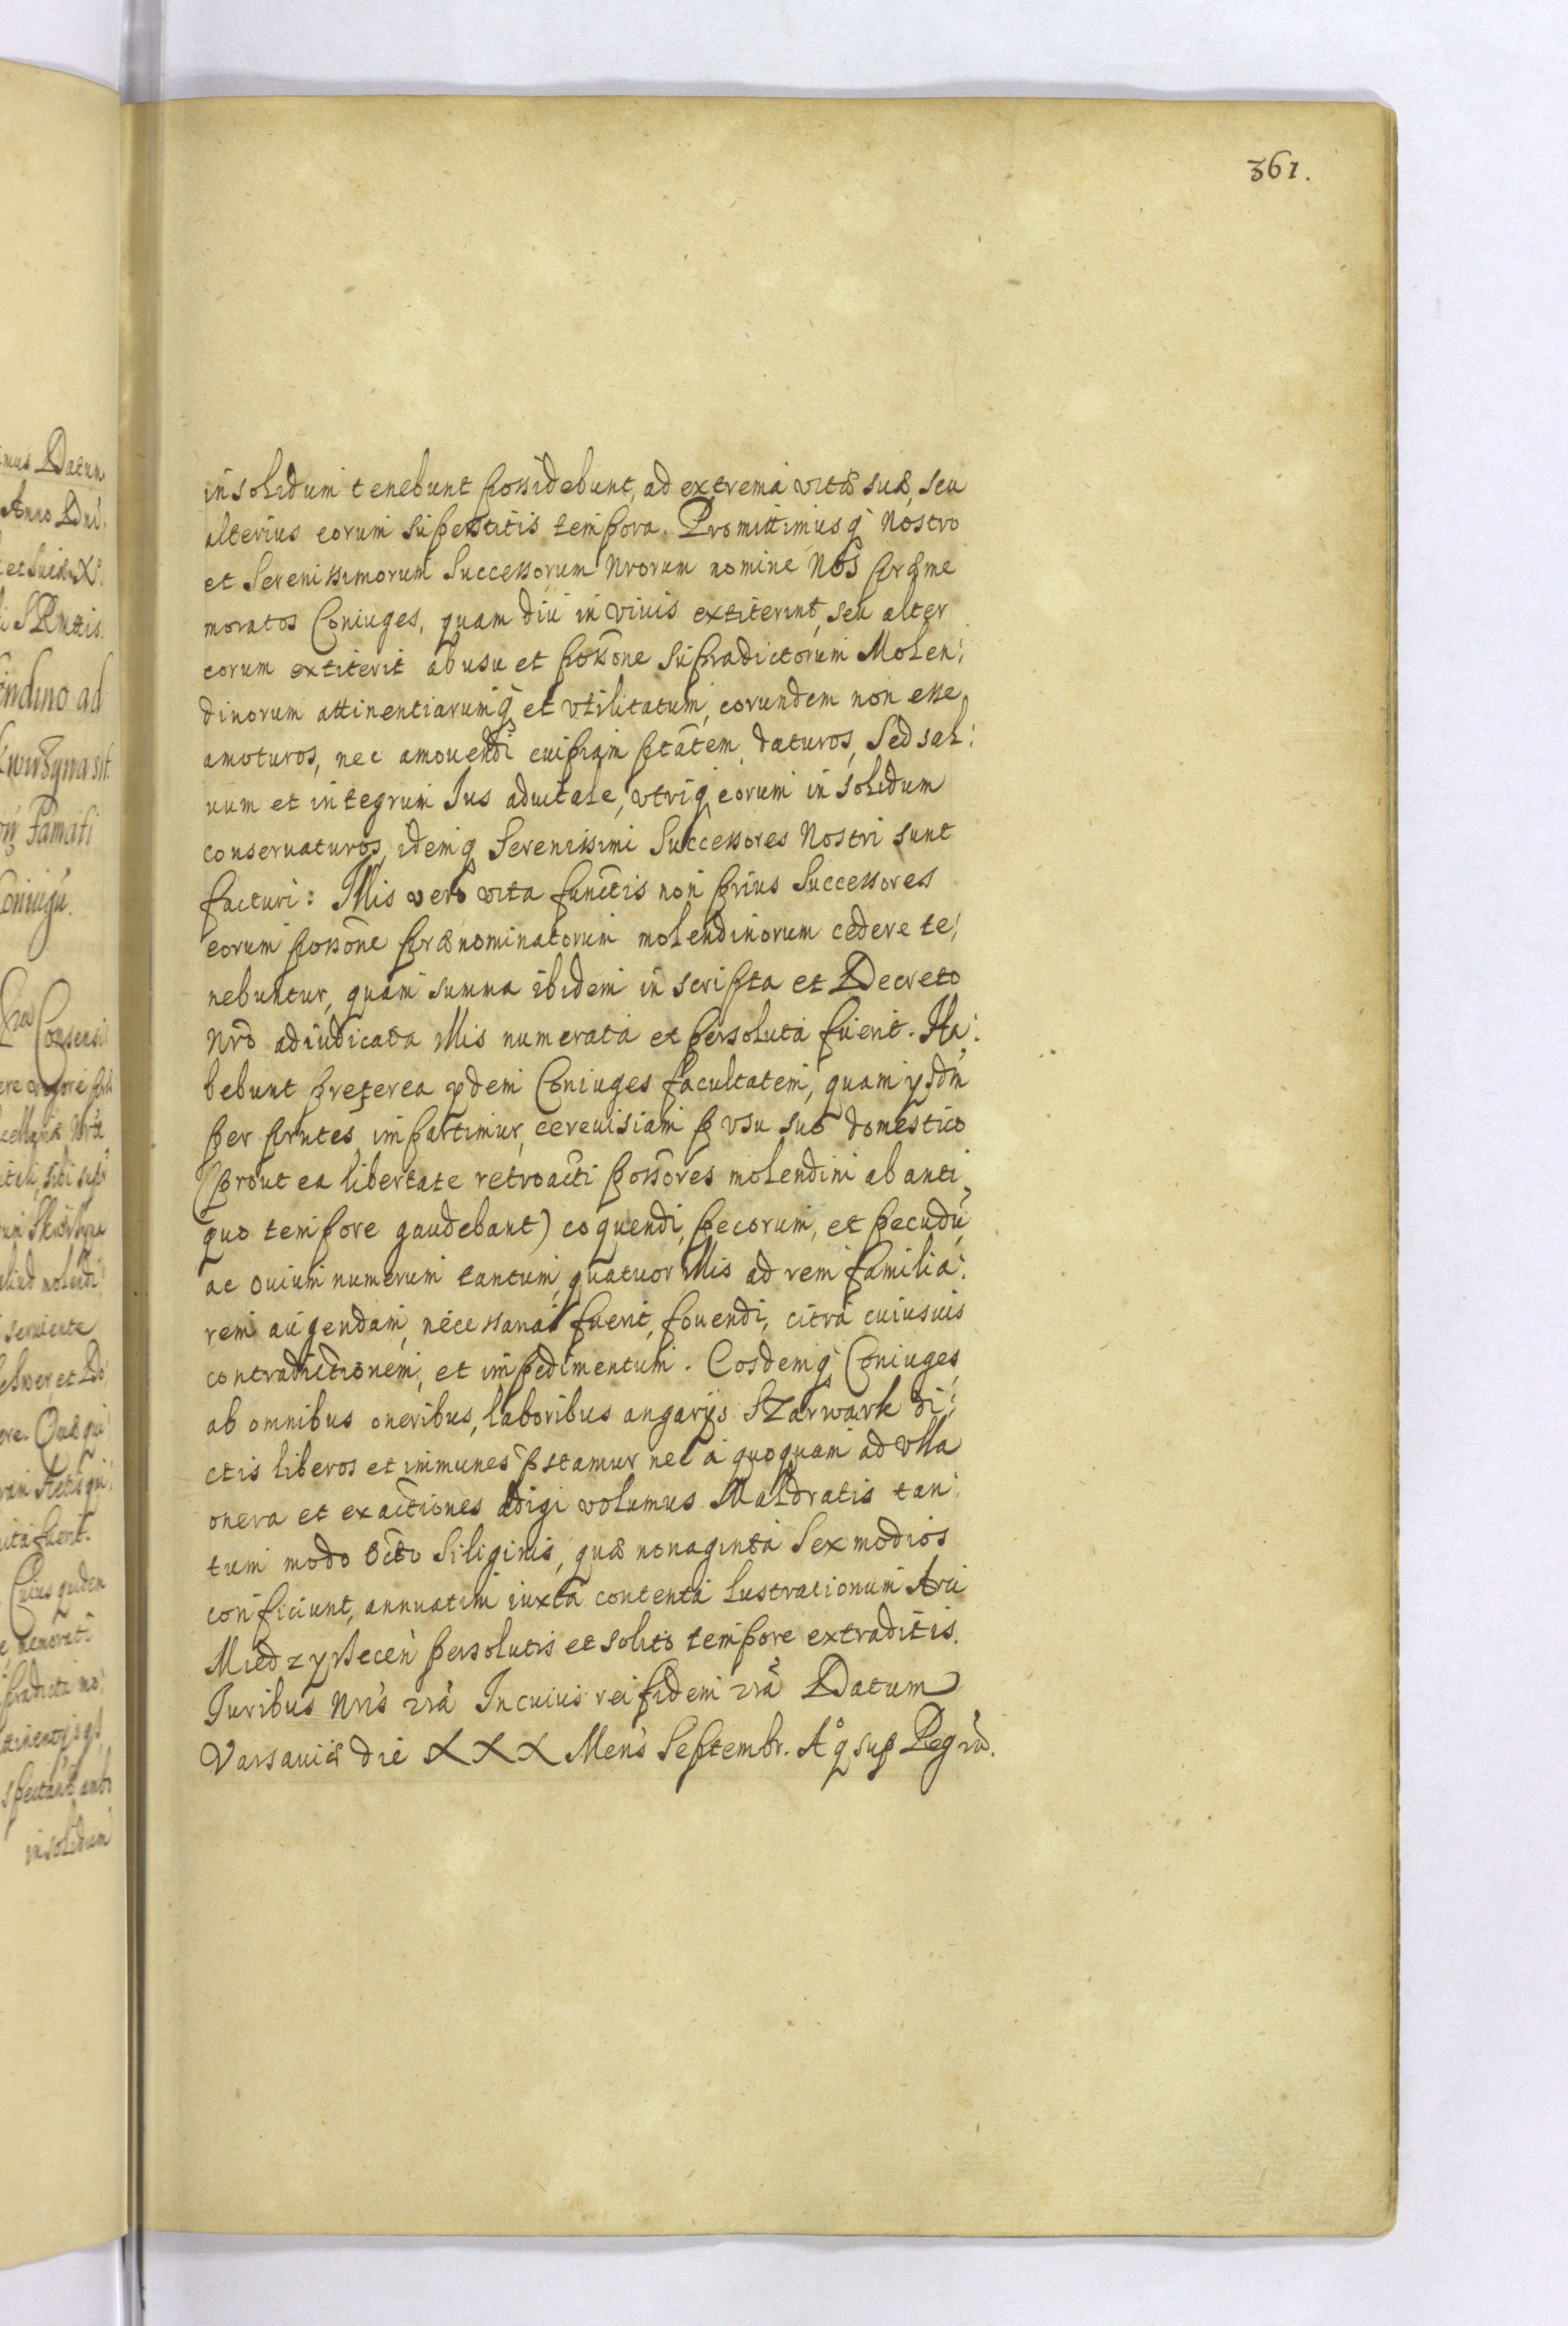 361.
in solidum tenebunt possidebunt, ad extrema vitæ suæ, seu
alterius eorum superstitis tempora. Promittimusq̃ Nostro
et Serenissimorum Successorum Nrorum nomine Nos præme
moratos Coniuges, quam diu in vivis extiterint, seu alter
eorum extiterit ab usu et possõne supradictorum Molen:
dinorum attinentiarumq̃ et vtilitatum, eorundem non esse
amoturos, nec amouendi cuipiam ptãtem daturos, Sed sal:
uum et integrum Ius aduitale, vtriq̃ eorum in solidum
conseruaturos, idemq̃ Serenissimi Successores Nostri sunt
facturi: Illis vero vita functis non prius Successores
eorum possõne prænominatorum molendinorum cedere te:
nebuntur, quam summa ibidem inscripta et Decreto
Nrõ adiudicata illis numerata et persoluta fuerit. Ha:
bebunt preterea ydem Coniuges facultatem, quam ysdm̃
per prñtes impartimur, cereuisiam p vsu suo domestico
(prout ea libertate retroacti possõres molendini ab anti
quo tempore gaudebant) coquendi, pecorum, et pecudũ
ac ouium numerum tantum, quatuor illis ad rem familia:
rem augendam, necessaria fuerit, fouendi, citra cuiusuis
contradictionem, et impedimentum. Eosdemq̃ Coniuges
ab omnibus oneribus, laboribus angarijs Szarwark di:
ctis liberos et immunes pstamur nec a quoquam ad vlla
onera et exactiones adigi volumus. Maldratis tan:
tum modo octo Siliginis, quæ nonaginta Sex modios
conficiunt, annuatim iuxta contenta Lustrationum Arci
Miedzyrzecen̄ persolutis et solito tempore extraditis.
Juribus Nris̃ rã In cuius rei fidem rã Datum
Varsauiæ die XXX Mens̃ Septembr. Aº q̃ sup Regrũ.